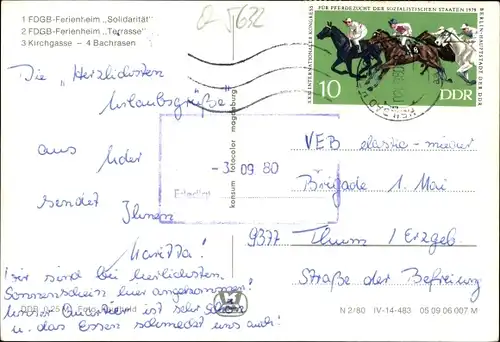 1 FDGB-Ferienheim „Solidarität"
2 FDGB-Ferienheim „Terrasse"
3 Kirchgasse – 4 Bachrasen
5632
XXIX. INTERNATIONALER KONGRESS FÜR PFERDEZUCHT DER SOZIALISTISCHEN STAATEN 1978
BERLIN-HAUPTSTADT DER DDR
10
DDR
Die „Herzlichsten
Urlaubsgrüße"
aus
sendet Ihnen
Maritta!
Wir sind bei herrlichstem
Sonnenschein hier angekommen!
Unser Quartier ist sehr schön
u. das Essen schmeckt uns auch!
- 3. 09. 80
Erledigt
konsum fotocolor magdeburg
VEB elastic-mieder
Brigade 1. Mai
9377 Thum / Erzgeb.
Straße der Befreiung
DDR 0,25 M Foto:
N 2/80 IV-14-483 05 09 06 007 M